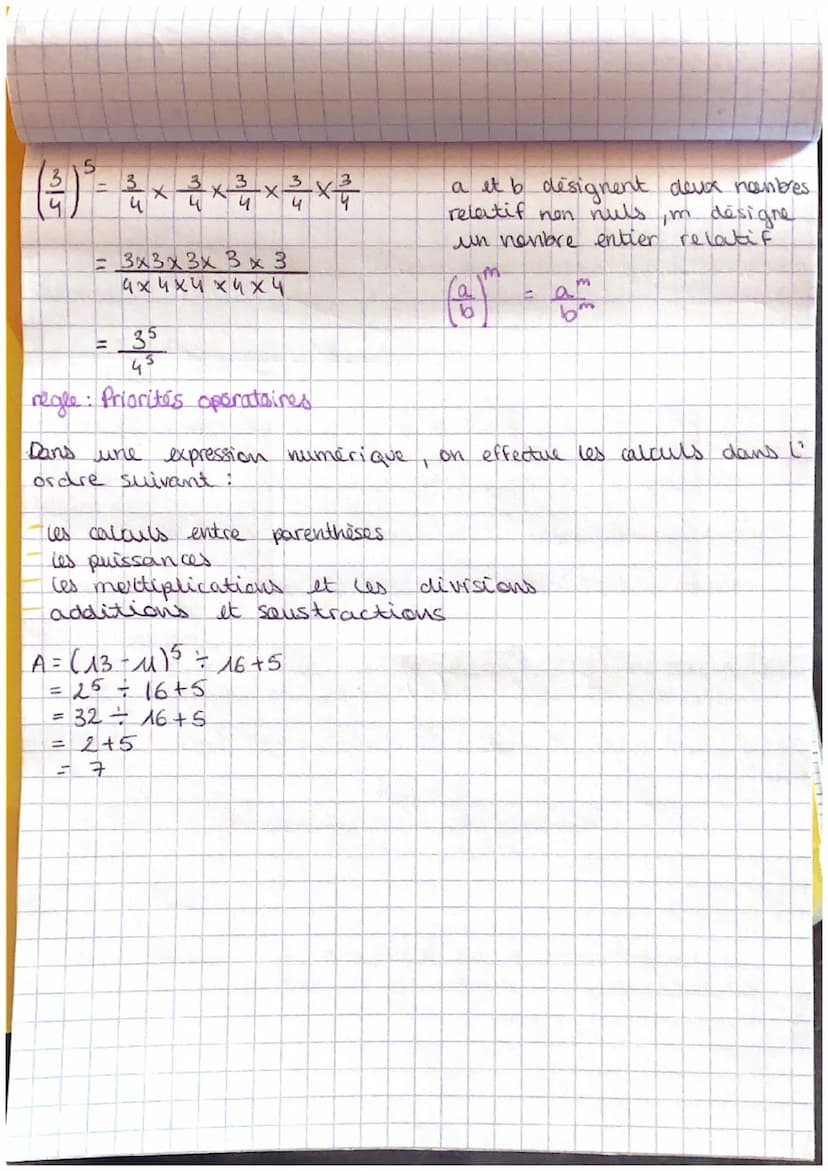 (3/4)^5 = 3/4 × 3/4 × 3/4 × 3/4 × 3/4
= 3×3×3×3×3 / 4×4×4×4×4
= 3^5 / 4^5
a et b désignent deux nombres
relatif non nuls, m désigne
un nombre entier relatif
(a/b)^m = a^m / b^m
règle : Priorités opérataires
Dans une expression numérique, on effectue les calculs dans l'
ordre suivant :
- les calculs entre parenthèses
- les puissances
- les multiplications et les divisions
- additions et soustractions
A = (13 - 11)^5 ÷ 16 + 5
= 2^5 ÷ 16 + 5
= 32 ÷ 16 + 5
= 2 + 5
= 7